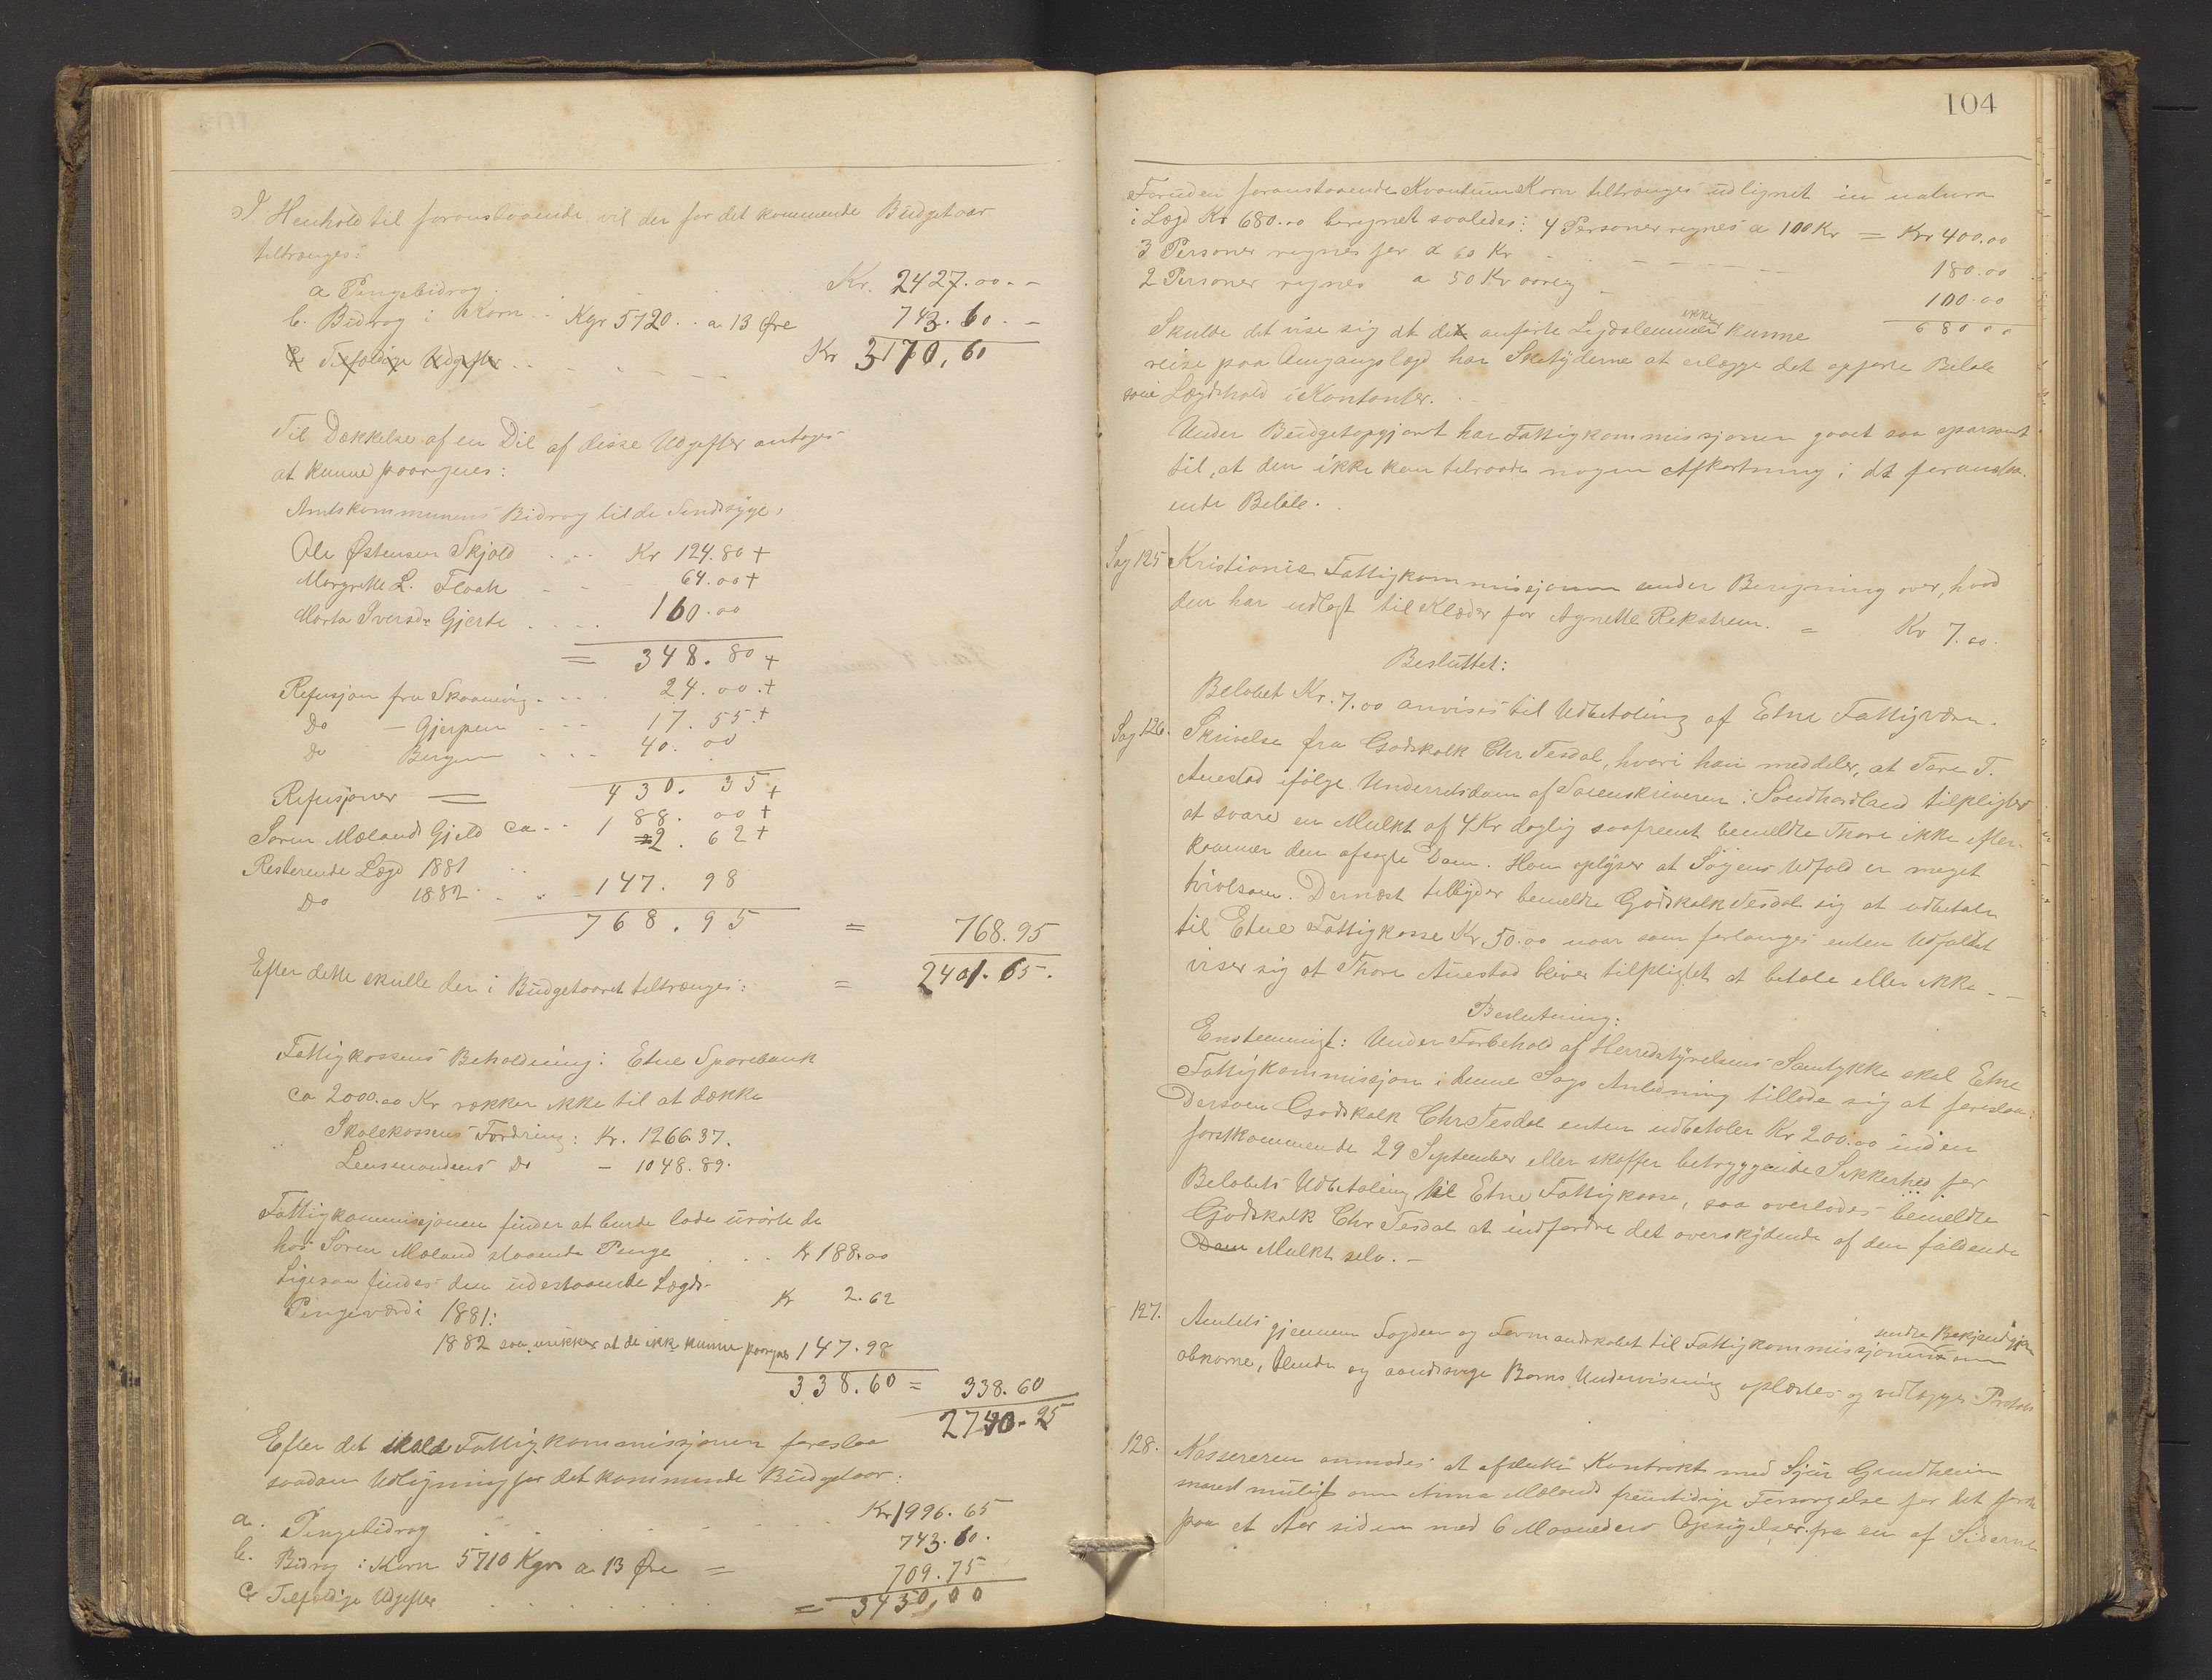 I Henhold til foranstaaende vil der for det kommende Budgetaar
tiltrænges:
a Pengebidrag . . . Kr. 2427.00.-
b. Bidrag i Korn . . Kgr 5720 . . a 13 Øre 743.60.-
c Tilfældige Udgifter . . . Kr 3170,60
Til Dækkelse af en Del af disse Udgifter antages
at kunne paaregnes:
Amtskommunens Bidrag til de Sindssyge,
Ole Østensen Skjold . . . Kr 124.80 +
Margrethe L. Floch - - 64.00 +
Marta Iversdr Gjerde . . . . 160.00
= 348.80 +
Refusjon fra Skaanevig . . . . 24.00.+
Do - Gjerpen - - - 17.55.+
Do Bergen - - - 40.00
Refusjoner = 430.35 +
Søren Mælands Gjeld ca - - 188.00 +
Resterende Lægd 1881 . . 2.62 +
Do 1882 - - 147.98
768.95 = 768.95
Efter dette skulle der i Budgetaaret tiltrænges: = 2401.65.
Fattigkassens Beholdning: Etne Sparebank
ca 2000.00 Kr rækker ikke til at dække
Skolekassens Fordring: Kr. 1266.37.
Lensmandens Do - 1048.89.
Fattigkommissjonen finder at burde lade urørte de
hos Søren Mæland staaende Penge . . . Kr 188.00
Ligesaa findes den udestaaende Lægds-
Pengeværdi 1881: Kr 2.62
1882 saa usikker at de ikke kunne paaregnes 147.98
338.60 = 338.60
2740.25
Efter det skulde Fattigkommissjonen foreslaa
saadan Udligning for det kommende Budgetaar:
a. Pengebidrag . . . Kr 1996.65
b. Bidrag i Korn 5710 Kgr a 13 Øre = 743.60.
c Tilfældige Udgifter . . . 709.75
= 3450,00
104
Foruden foranstaaende Kvantum Korn tiltrænges udlignet in natura
i Lægd Kr 680.00 beregnet saaledes: 4 Personer regnes a 100 Kr = Kr 400.00
3 Personer regnes for a 60 Kr - - - 180.00
2 Personer regnes a 50 Kr aarlig - 100.00
680 00
Skulde det vise sig at de anførte Lægdslemmer ikke kunne
reise paa Omgangslægd har Skatyderne at erlægge det opførte Beløb
som Lægdshold i Kontanter.
Under Budgetopgjøret har Fattigkommissjonen gaaet saa sparsomt
til, at den ikke kan tilraade nogen Afkortning i det foranstaa-
ende Beløb.
Sag 125 Kristiania Fattigkommissjonen sender Beregning over, hvad
den har udlagt til Klæder for Agnethe Rekstrem. = Kr 7.00.
Besluttet:
Beløbet Kr. 7.00 anvises til Udbetaling af Etne Fattigvæsn.
Sag 126. Skrivelse fra Godskalk Chr Tesdal, hvori han meddeler, at Tore T.
Auestad ifølge Underretsdom af Sorenskriveren i Søndhordland tilpligtes
at svare en Mulkt af 4 Kr daglig saafremt bemeldte Thore ikke efter-
kommer den afsagte Dom. Han oplyser at Sagens Udfald er meget
tvivlsom. Dernæst tilbyder bemeldte Godskalk Tesdal sig at udbetale
til Etne Fattigkasse Kr. 50.00 naar som forlanges enten Udfaldet
viser sig at Thore Auestad bliver tilpligtet at betale eller ikke. -
Beslutning:
Enstemmigt: Under Forbehold af Herredstyrelsens Samtykke skal Etne
Fattigkommissjon i denne Sags Anledning tillade sig at foreslaa:
Dersom Godskalk Chr Tesdal enten udbetaler Kr 200.00 inden
førstkommende 29 September eller skaffer betryggende Sikkerhed for
Beløbets Udbetaling til Etne Fattigkasse, saa overlades bemeldte
Godskalk Chr Tesdal at indfordre det overskydende af den faldende
Dom Mulkt selv. -
127. Amtets gjennem Fogden og Formandskabet til Fattigkommissjonen sendte Bekjendtgjør om
abnorme, blinde og aandssvage Børns Undervisning oplæstes og vedlægges Protok
128. Kassereren anmodes at afslutte Kontrakt med Sjur Grindheim
snarest muligt om Anna Mælands fremtidige Forsørgelse for det første
paa et Aar siden med 6 Maaneders Opsigelse fra en af Siderne